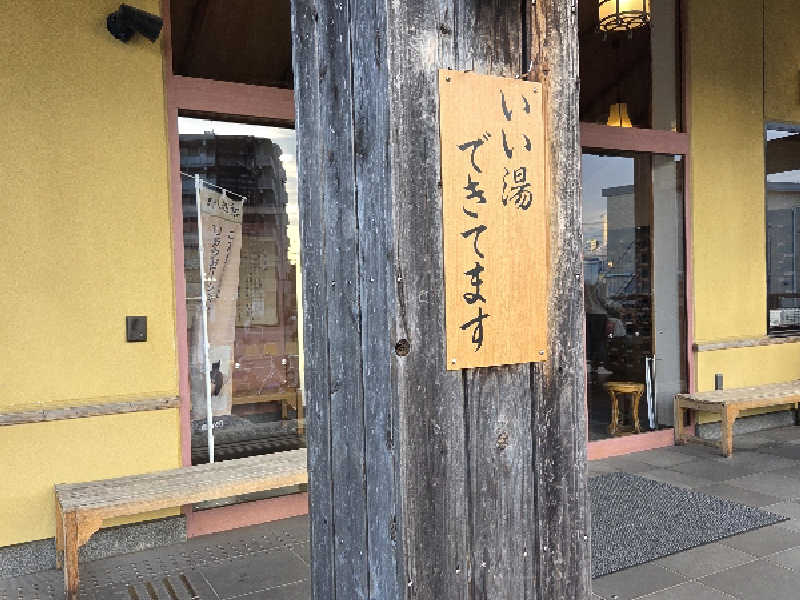 いい湯
できてます